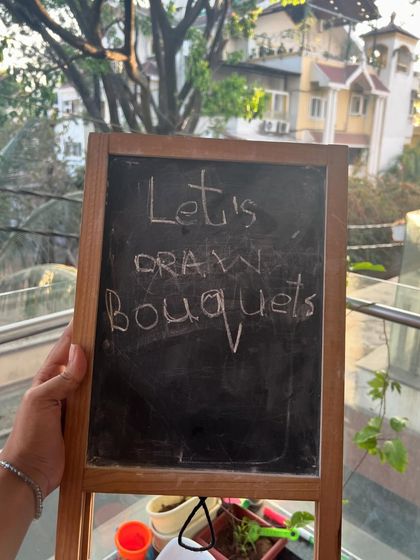 Let's
DRAW
Bouquets